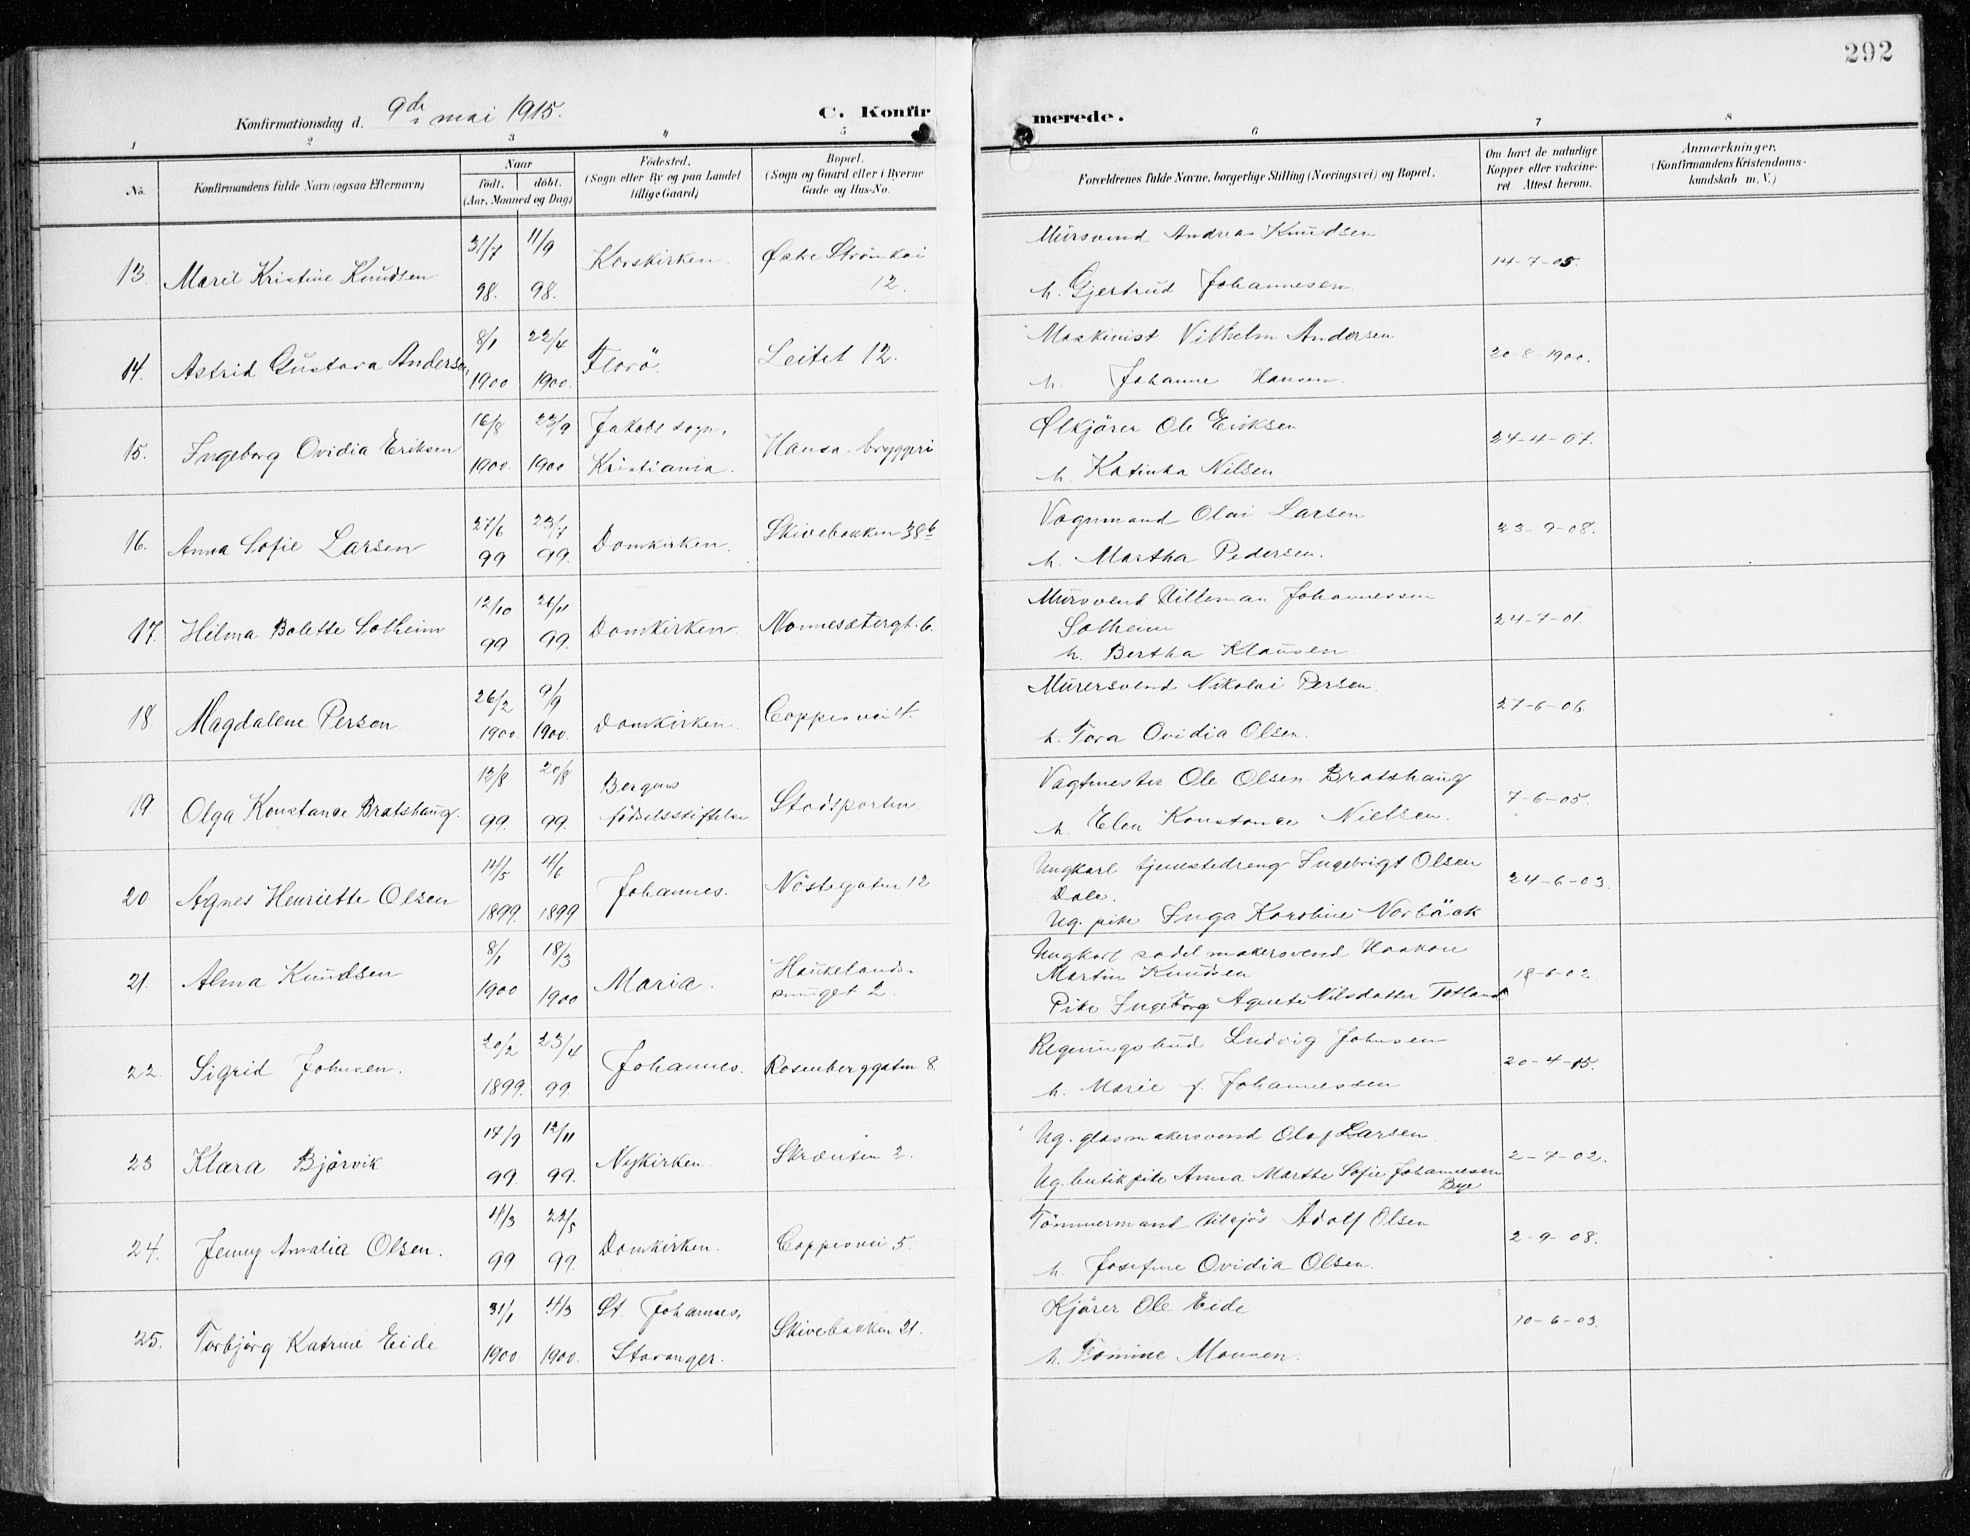 292
Konfirmationsdag d. 9de mai 1915.
C. Konfirmerede.
1 2 3 " 5 6 7 8
No.
Konfirmandens fulde Navn (ogsaa Efternavn)
Naar
født. døbt.
(Aar, Maaned og Dag)
Fødested.
(Sogn eller By og paa Landet
tillige Gaard)
Bopæl.
(Sogn og Gaard eller i Byerne
Gade og Hus-No.
Forældrenes fulde Navne, borgerlige Stilling (Næringsvei) og Bopæl.
Om havt de naturlige
Kopper eller vakcine-
ret. Attest herom.
Anmærkninger.
(Konfirmandens Kristendoms-
kundskab m. V.)
31/7 11/9 Mursvend Andreas Knudsen
13. Maril Kristine Knudsen Korskirken. Østre Strømkai 14-7-05.
98. 98. 12. h. Gjertrud Johannesen.
8/1 22/4 Maskinist Vilhelm Andersen
14. Astrid Gustava Andersen Florö. Leitet 12. 20-8-1900.
1900 1900. h. Johanne Hansen.
16/8 23/9 Jakobs sogn, Ølkjörer Ole Eriksen
15. Ingeborg Ovidia Eriksen Hansa bryggeri 24-4-07.
1900. 1900 Kristiania. h. Katinka Nilsen
27/6 23/7 Vognmand Olai Larsen
16. Anna Sofie Larsen Domkirken. Skivebakken 38b 23-9-08.
99 99. h. Martha Pedersen.
12/10 26/11 Mursvend Villeman Johannessen
17. Hilma Bolette Solheim Domkirken. Nonnesætergt. 6. Solheim 24-7-01.
99 99. h. Bertha Klausen.
26/2 9/9 Murersvend Nikolai Persen.
18 Magdalene Persen. Domkirken. Coppesvei 4. 27-6-06.
1900. 1900. h. Tora Ovidia Olsen.
13/8 20/8 Bergens Vagtmester Ole Olsen Bratshaug
19 Olga Konstanse Bratshaug. fødselsstiftelse Stadsporten. 7-6-05.
99. 99. h. Elen Konstanse Nielsen.
14/5 4/6 Ungkarl tjenestedreng Ingebrigt Olsen
20 Agnes Henriette Olsen Johannes. Nöstegaten 12 Dale. 24-6-03.
1899. 1899 Ug. pike Inga Karoline Norbäck
8/1 18/3 Ungkarl sadelmakersvend Haakon
21. Alma Knudsen Maria. Haukelands- Martin Knudsen 18-6-02.
1900 1900 smuget 2. Pike Ingeborg Agnete Nilsdatter Totland
20/2 23/4 Regningsbud Ludvig Johnsen
22. Sigrid Johnsen. Johannes. Rosenberggaten 8 20-4-15.
1899. 99. h. Marie f. Johannessen
17/9 12/11 Ug. glasmakersvend Olaf Larsen.
23 Klara Bjørvik Nykirken. Skrænten 2. 2-7-02.
99. 99. Ug. butikpike Anna Marthe Sofie Johannesen
Bye
4/3 22/5 Tömmermand tilsjös Adolf Olsen
24. Jenny Amalia Olsen. Domkirken. Coppesvei 5. 2-9-08.
99 99. h. Josefine Ovidia Olsen.
31/1 4/3 St. Johannes, Kjörer Ole Eide
25. Torbjörg Katrine Eide Skivebakken 21. 10-6-03.
1900. 1900. Stavanger. h. Tomine Monsen.